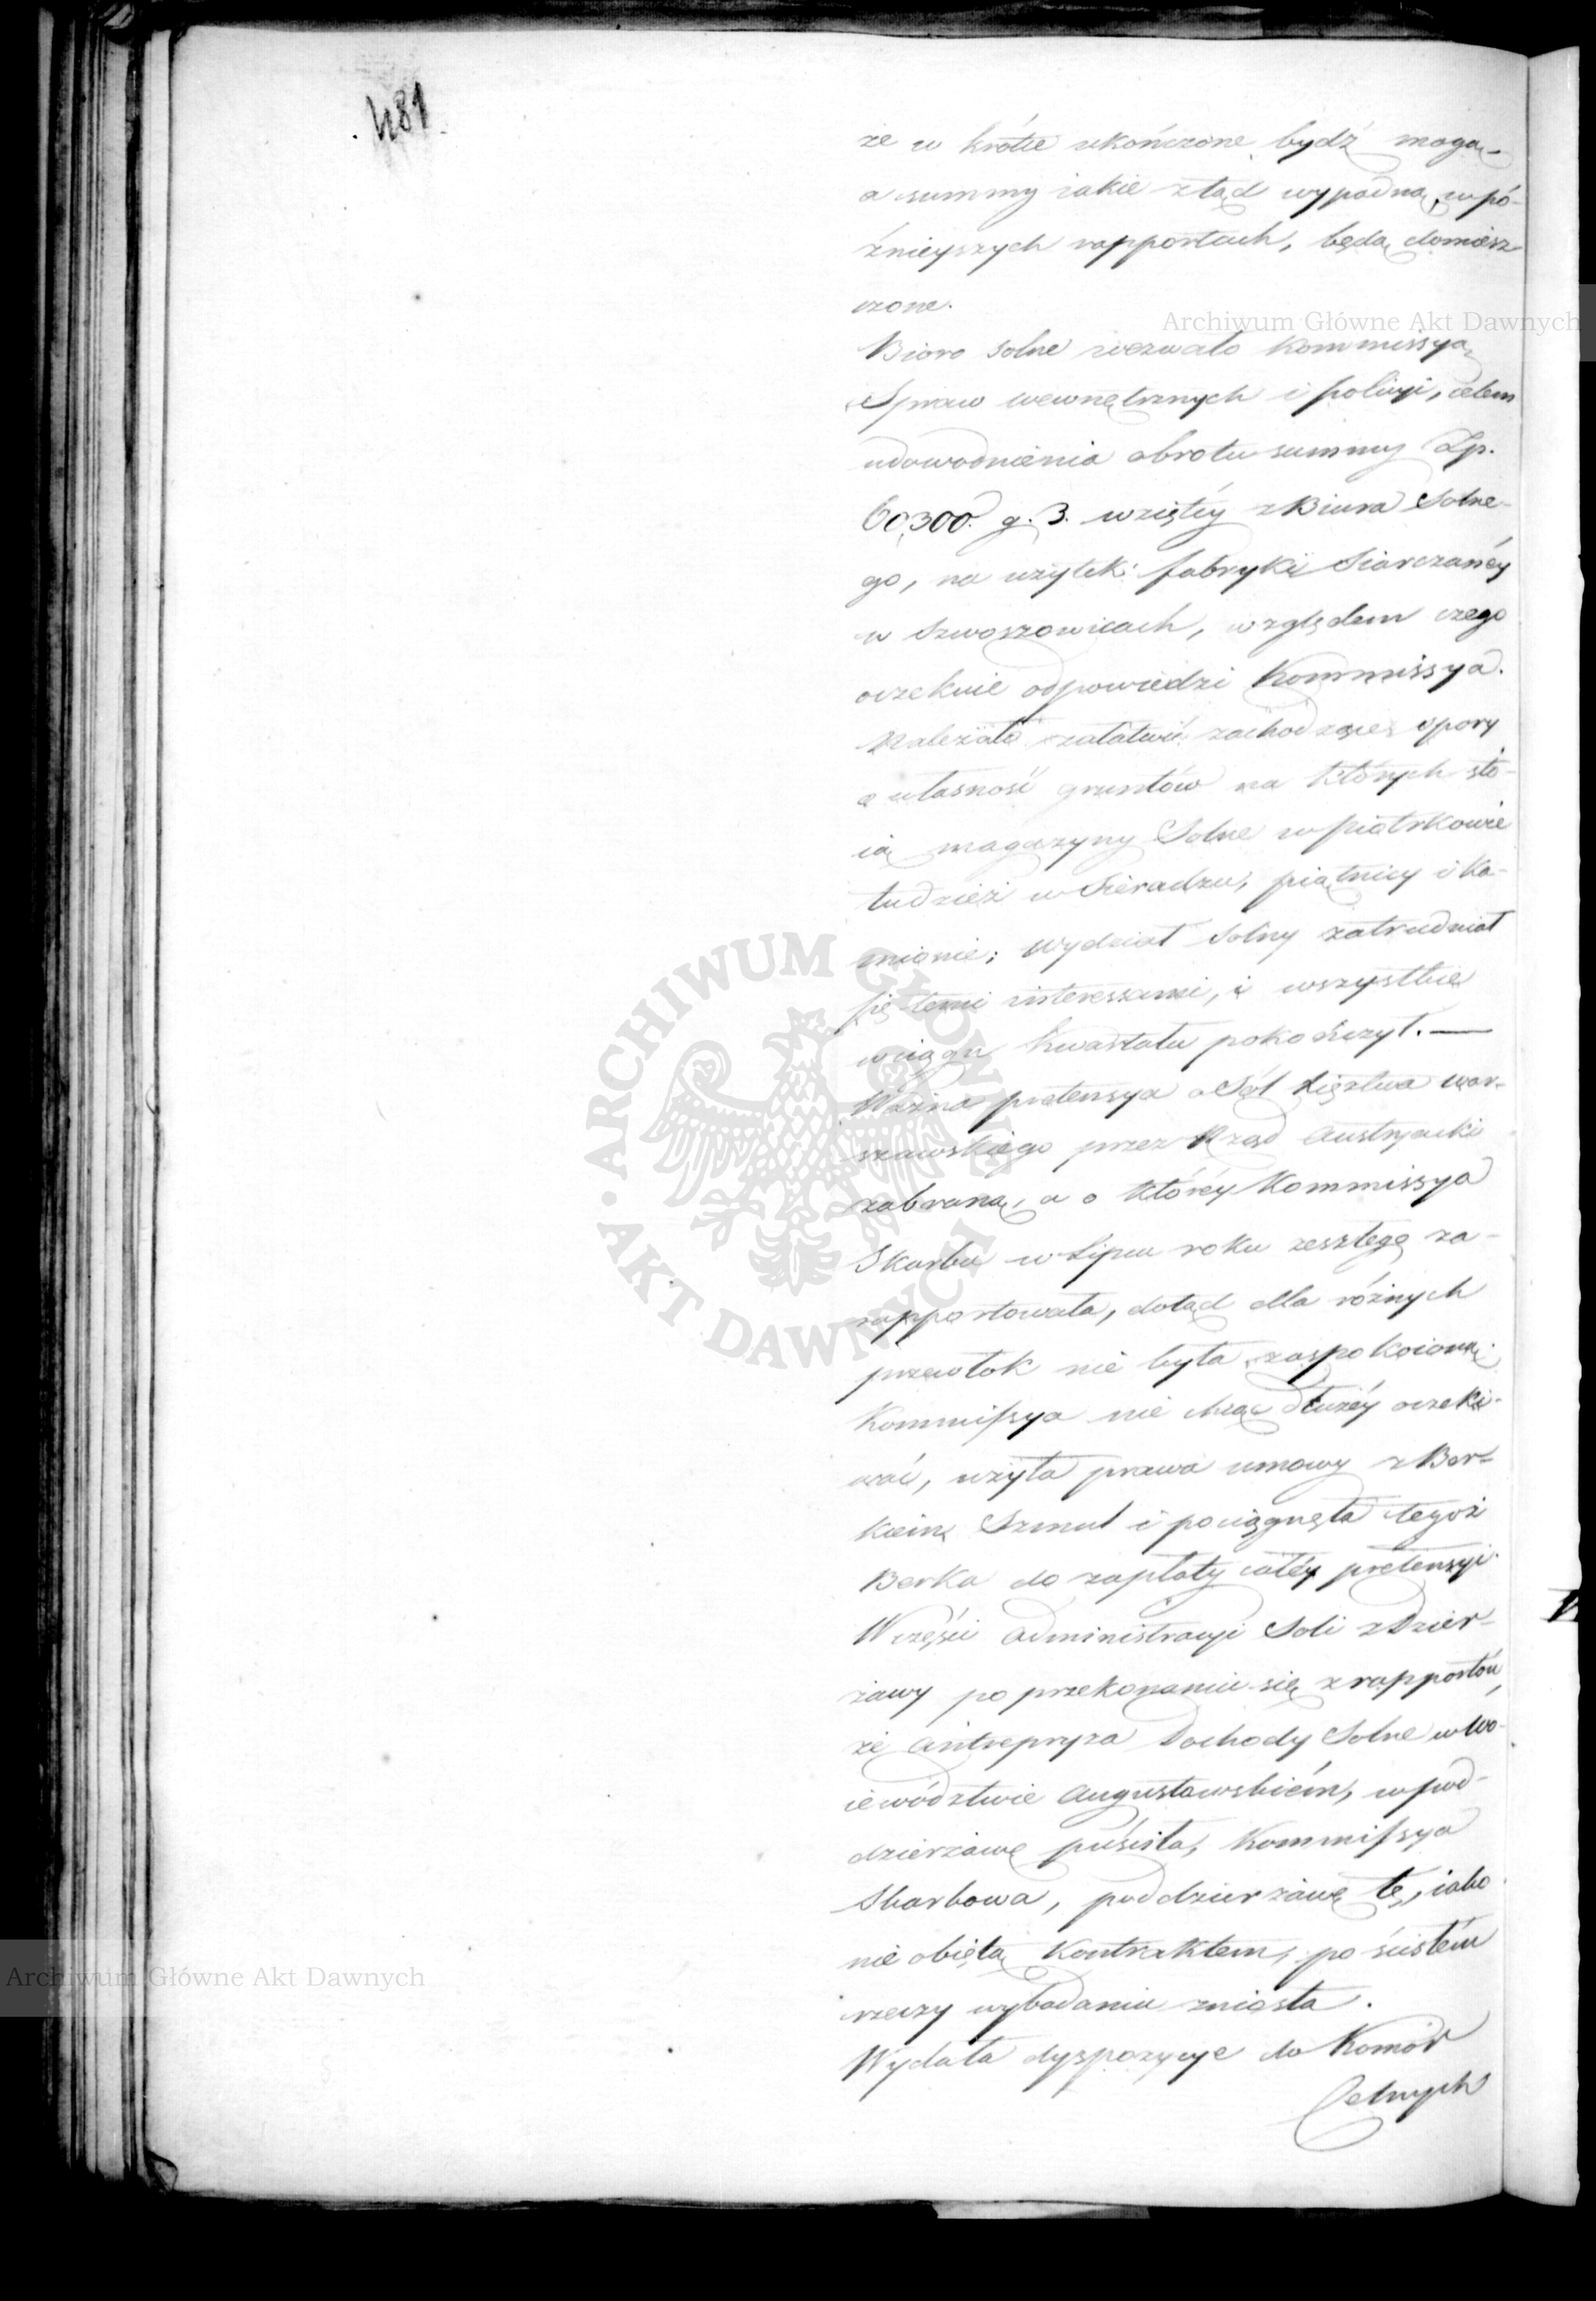 481
że w krótce ukończone bydź mogą
a summy iakie ztąd wypadną, w pó-
źnieyszych rapportach, będą domiesz-
czone.
Archiwum Główne Akt Dawnych
Bioro Solne wezwało Kommissyą
Spraw wewnętrznych i policyi, celem
udowodnienia obrotu summy Zp.
60,300. g. 3. wziętéy z Biura Solne-
go, na użytek fabryki Siarczanéy
w Szwoszowicach, względem czego
oczekuie odpowiedzi Kommissya.
Należało załatwić zachodzące spory
o własność gruntów na których sto-
ią magazyny Solne w piotrkowie
tudzież w Sieradzu, piątnicy i Ka-
mionie; Wydział Solny zatrudniał
się temi interessami, i wszystkie
w ciągu kwartału pokończył. —
Ważna pretensya o Sól Xięztwa War-
szawskiego przez Rząd Austryacki
zabraną, a o któréy Kommissya
Skarbu w Lipcu roku zeszłego za-
rapportowała, dotąd dla różnych
przewłok nie była zaspokoioną.
Kommissya nie chcąc dłużéy oczeki-
wać, użyła prawa umowy z Ber-
kiem Szmul i pociągnęła tegoż
Berka do zapłaty całéy pretensyi.
W części Administracyi Soli z Dzier-
żawy po przekonaniu się z rapportów,
że Antrepryza Dochody Solne w Wo-
iewództwie Augustowskiém, w pod-
dzierżawę puściła, Kommissya
Skarbowa, poddzierżawę tę, iako
nie obiętą Kontraktem, po ścisłém
Archiwum Główne Akt Dawnych
rzeczy wybadaniu zniosła.
Wydała dyspozycye do Komór
Celnych
ARCHIWUM GŁÓWNE · AKT DAWNYCH ·